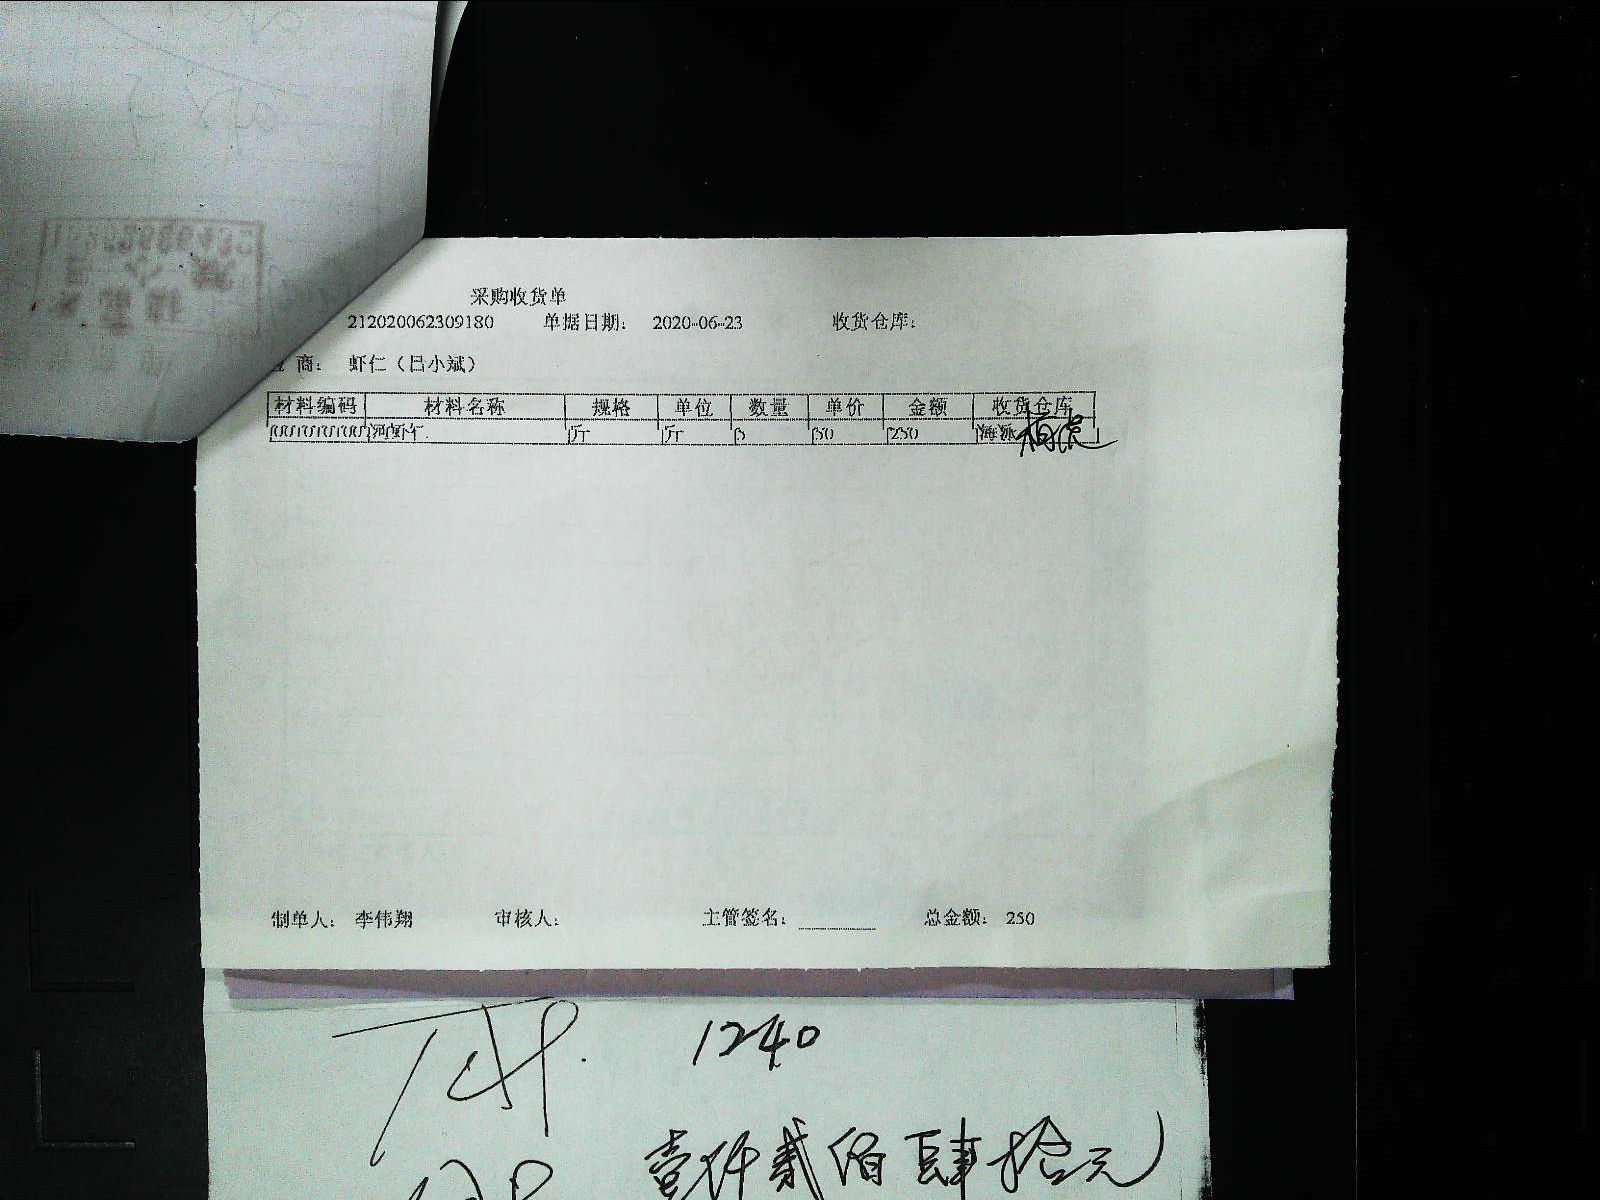 采购收货单
212020062309180 单据日期: 2020-06-23 收货仓库:
商: 虾仁（吕小斌）
材料编码 材料名称 规格 单位 数量 单价 金额 收货仓库
河虾仁 斤 斤 5 50 250 海派
制单人: 李伟翔 审核人: 主管签名: 总金额: 250
1240
壹仟贰佰肆拾元